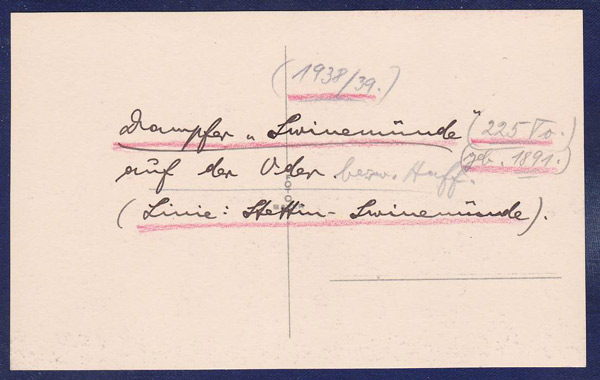 (1938/39.)
Dampfer „Swinemünde" (225 To.
auf der Oder. bezw. Haff. geb. 1891.)
(Linie: Stettin-Swinemünde).